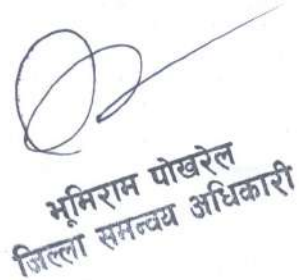 भूमिराम पोखरेल
जिल्ला समन्वय अधिकारी